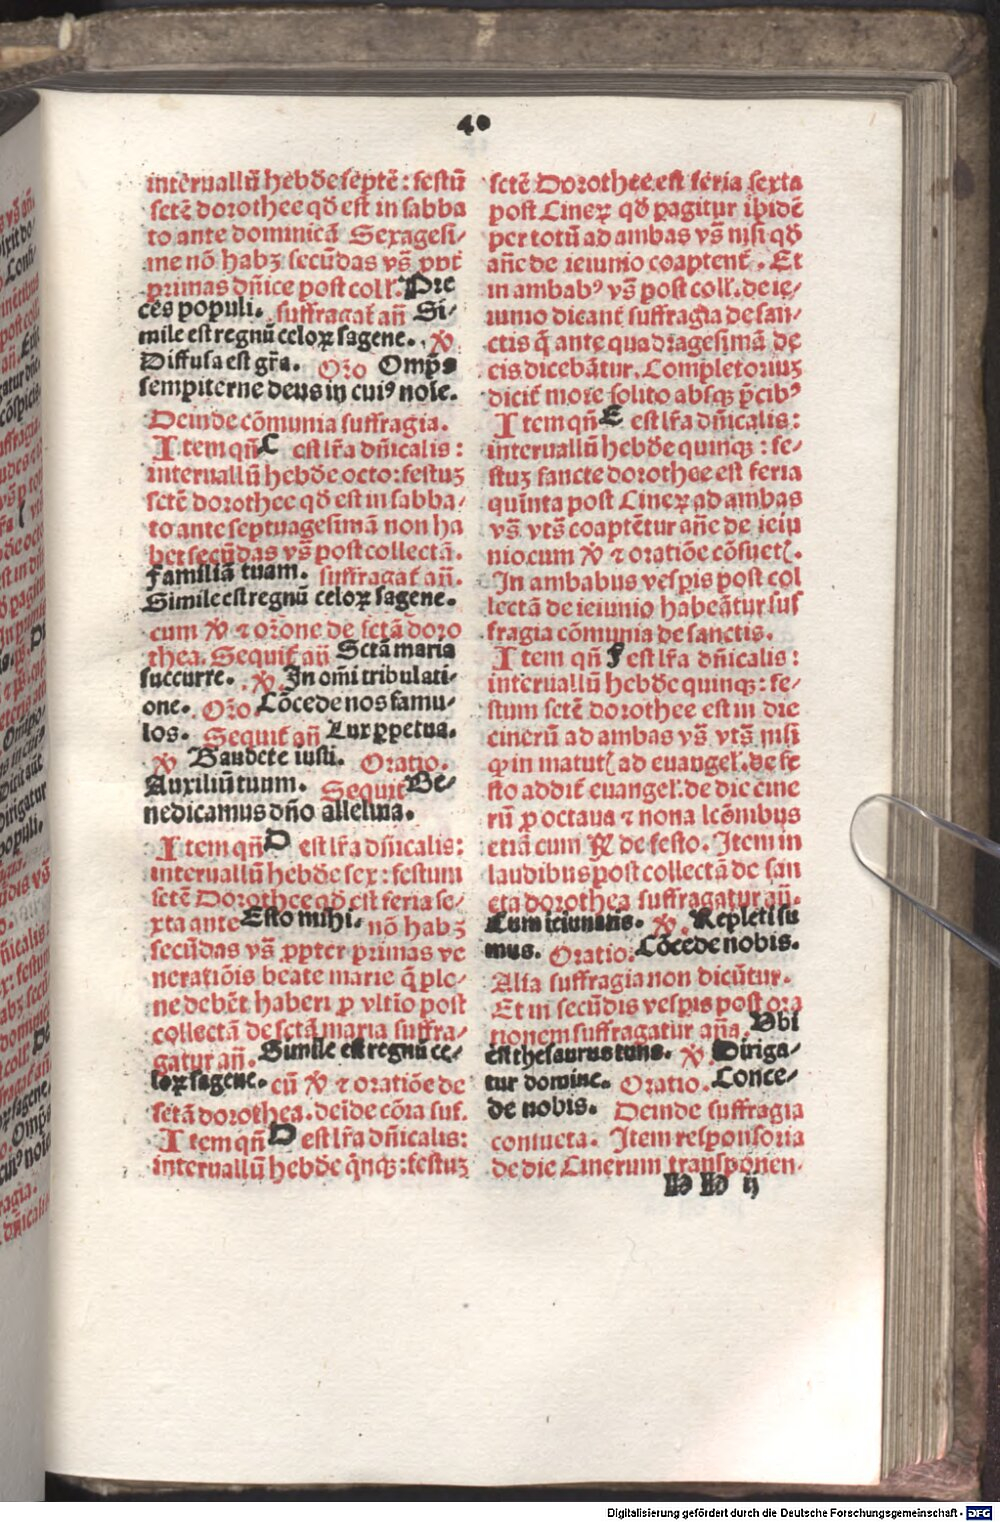 40
interuallū hebde septē: festū
sctē dorothee qd est in sabba
to ante dominicā Sexagesi-
me nō habꝫ secūdas vs̄ ppt̄
primas dn̄ice post coll'. Pre
ces populi. suffragat̄ an̄ Si-
mile est regnū celoꝝ sagene. ℣
Diffusa est gr̄a. Oro Omp̄s
sempiterne deus in cuiꝰ noīe.
Deinde cōmunia suffragia.
Item qn̄ C est lr̄a dn̄icalis:
interuallū hebde octo: festuꝫ
sctē dorothee qd est in sabba-
to ante septuagesimā non ha
bet secūdas vs̄ post collectā.
Familiā tuam. suffragat̄ an̄.
Simile est regnū celoꝝ sagene.
cum ℣ ⁊ orōne de sctā doro
thea. Sequit̄ an̄ Sctā maria
succurre. ℣ In om̄i tribulati-
one. Oro Cōcede nos famu-
los. Sequit̄ an̄ Lux ꝑpetua.
℣ Gaudete iusti. Oratio.
Auxiliū tuum. Sequit̄ Be-
nedicamus dn̄o alleluia.
Item qn̄ D est lr̄a dn̄icalis:
interuallū hebde sex: festum
sctē Dorothee qd est feria se-
xta ante Esto mihi. nō habꝫ
secūdas vs̄ ꝓpter primas ve
neratiōis beate marie q̄ ple-
ne debēt haberi ꝑ vltio post
collectā de sctā maria suffra-
gatur an̄. Simile est regnū ce-
loꝝ sagene. cū ℣ ⁊ oratiōe de
sctā dorothea. deīde cōīa suf.
Item qn̄ D est lr̄a dn̄icalis:
interuallū hebde q̄nqꝫ: festuꝫ
sctē Dorothee est feria sexta
post Cineꝝ qd pagitur ibidē
per totū ad ambas vs̄ nisi qd
an̄e de ieiunio coaptent̄. Et
in ambabꝰ vs̄ post coll'. de ie-
iunio dicant̄ suffragia de san-
ctis q̄ ante quadragesimā de
cis dicebātur. Completoriuꝫ
dicit̄ more solito absqꝫ p̄cibꝰ
Item qn̄ E est lr̄a dn̄icalis:
interuallū hebde quinqꝫ: fe-
stuꝫ sancte dorothee est feria
quinta post Cineꝝ ad ambas
vs̄ vts̄ coaptētur an̄e de ieiu
nio cum ℣ ⁊ oratiōe cōsuet'.
In ambabus vesꝑis post col
lectā de ieiunio habeātur suf
fragia cōmunia de sanctis.
Item qn̄ F est lr̄a dn̄icalis:
interuallū hebde quinqꝫ: fe-
stum sctē dorothee est in die
cinerū ad ambas vs̄ vts̄ nisi
ꝙ in matut' ad euangel'. de fe
sto addit̄ euangel'. de die cine
rū ꝓ octaua ⁊ nona lcōnibus
etiā cum ℟ de festo. Item in
laudibus post collectā de san
cta dorothea suffragatur an̄.
Cum ieiunatis. ℣ Repleti su
mus. Oratio. Cōcede nobis.
Alia suffragia non dicūtur.
Et in secūdis vesꝑis post ora
tionem suffragatur an̄s. Vbi
est thesaurus tuus. ℣ Diriga-
tur domine. Oratio. Conce-
de nobis. Deinde suffragia
consueta. Item responsoria
de die Cinerum transponen-
HH ij
Digitalisierung gefördert durch die Deutsche Forschungsgemeinschaft - DFG